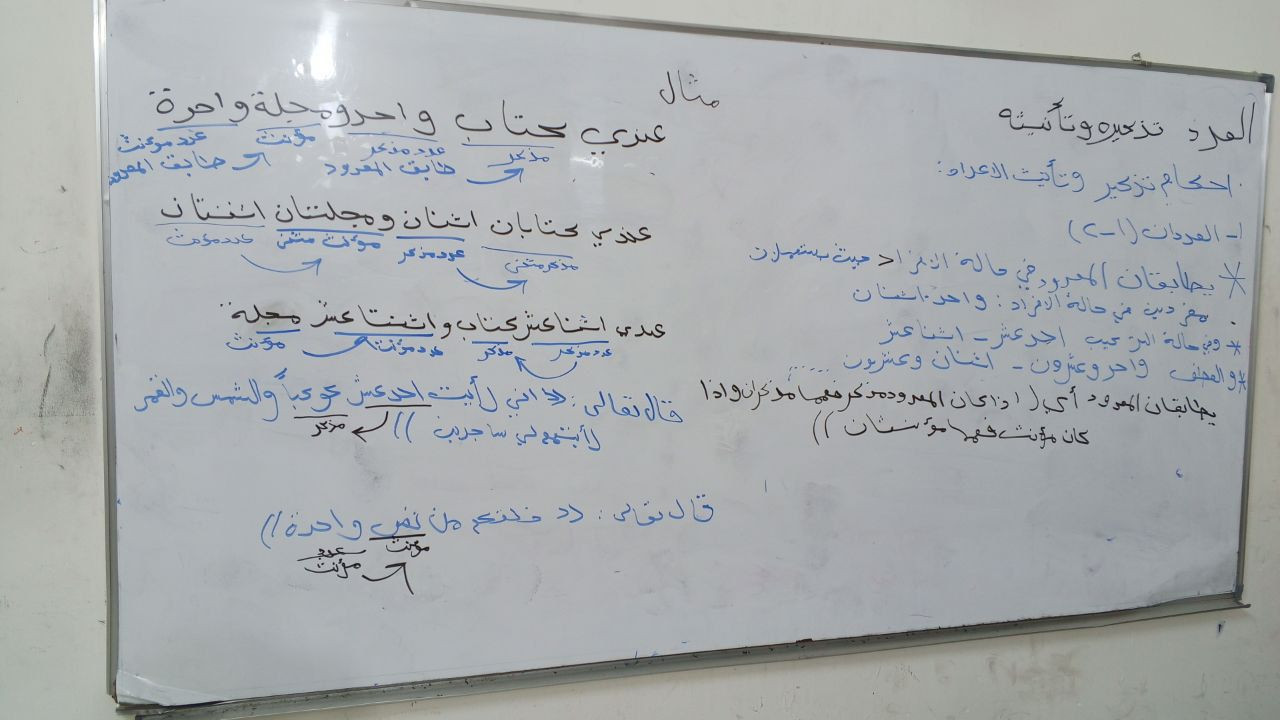 العدد تذكيره وتأنيثه
احكام تذكير وتأنيث الاعداد:
١- العددان (١-٢)
* يطابقان المعدود في حالة الافراد < حيث يستعملان
مفردين في حالة الافراد: واحد، اثنان
* وفي حالة التركيب احد عشر - اثنا عشر
* والعطف واحد وعشرون - اثنان وعشرون ......
يطابقان المعدود أي (( اذا كان المعدود مذكر فهما مذكران واذا
كان مؤنث فهما مؤنثتان ))
مثال
عندي كتاب واحد ومجلة واحدة
مذكر عدد مذكر مؤنث عدد مؤنث
طابق المعدود طابق المعدود
عندي كتابان اثنان ومجلتان اثنتان
مذكر مثنى عدد مذكر مؤنث مثنى عدد مؤنث
عندي اثنا عشر كتاب واثنتا عشر مجلة
عدد مذكر مذكر عدد مؤنث مؤنث
قال تعالى: (( اني رأيت احد عشر كوكباً والشمس والقمر
رأيتهم لي ساجدين ))
مذكر
قال تعالى: (( خلقكم من نفس واحدة ))
مؤنث عدد
مؤنث